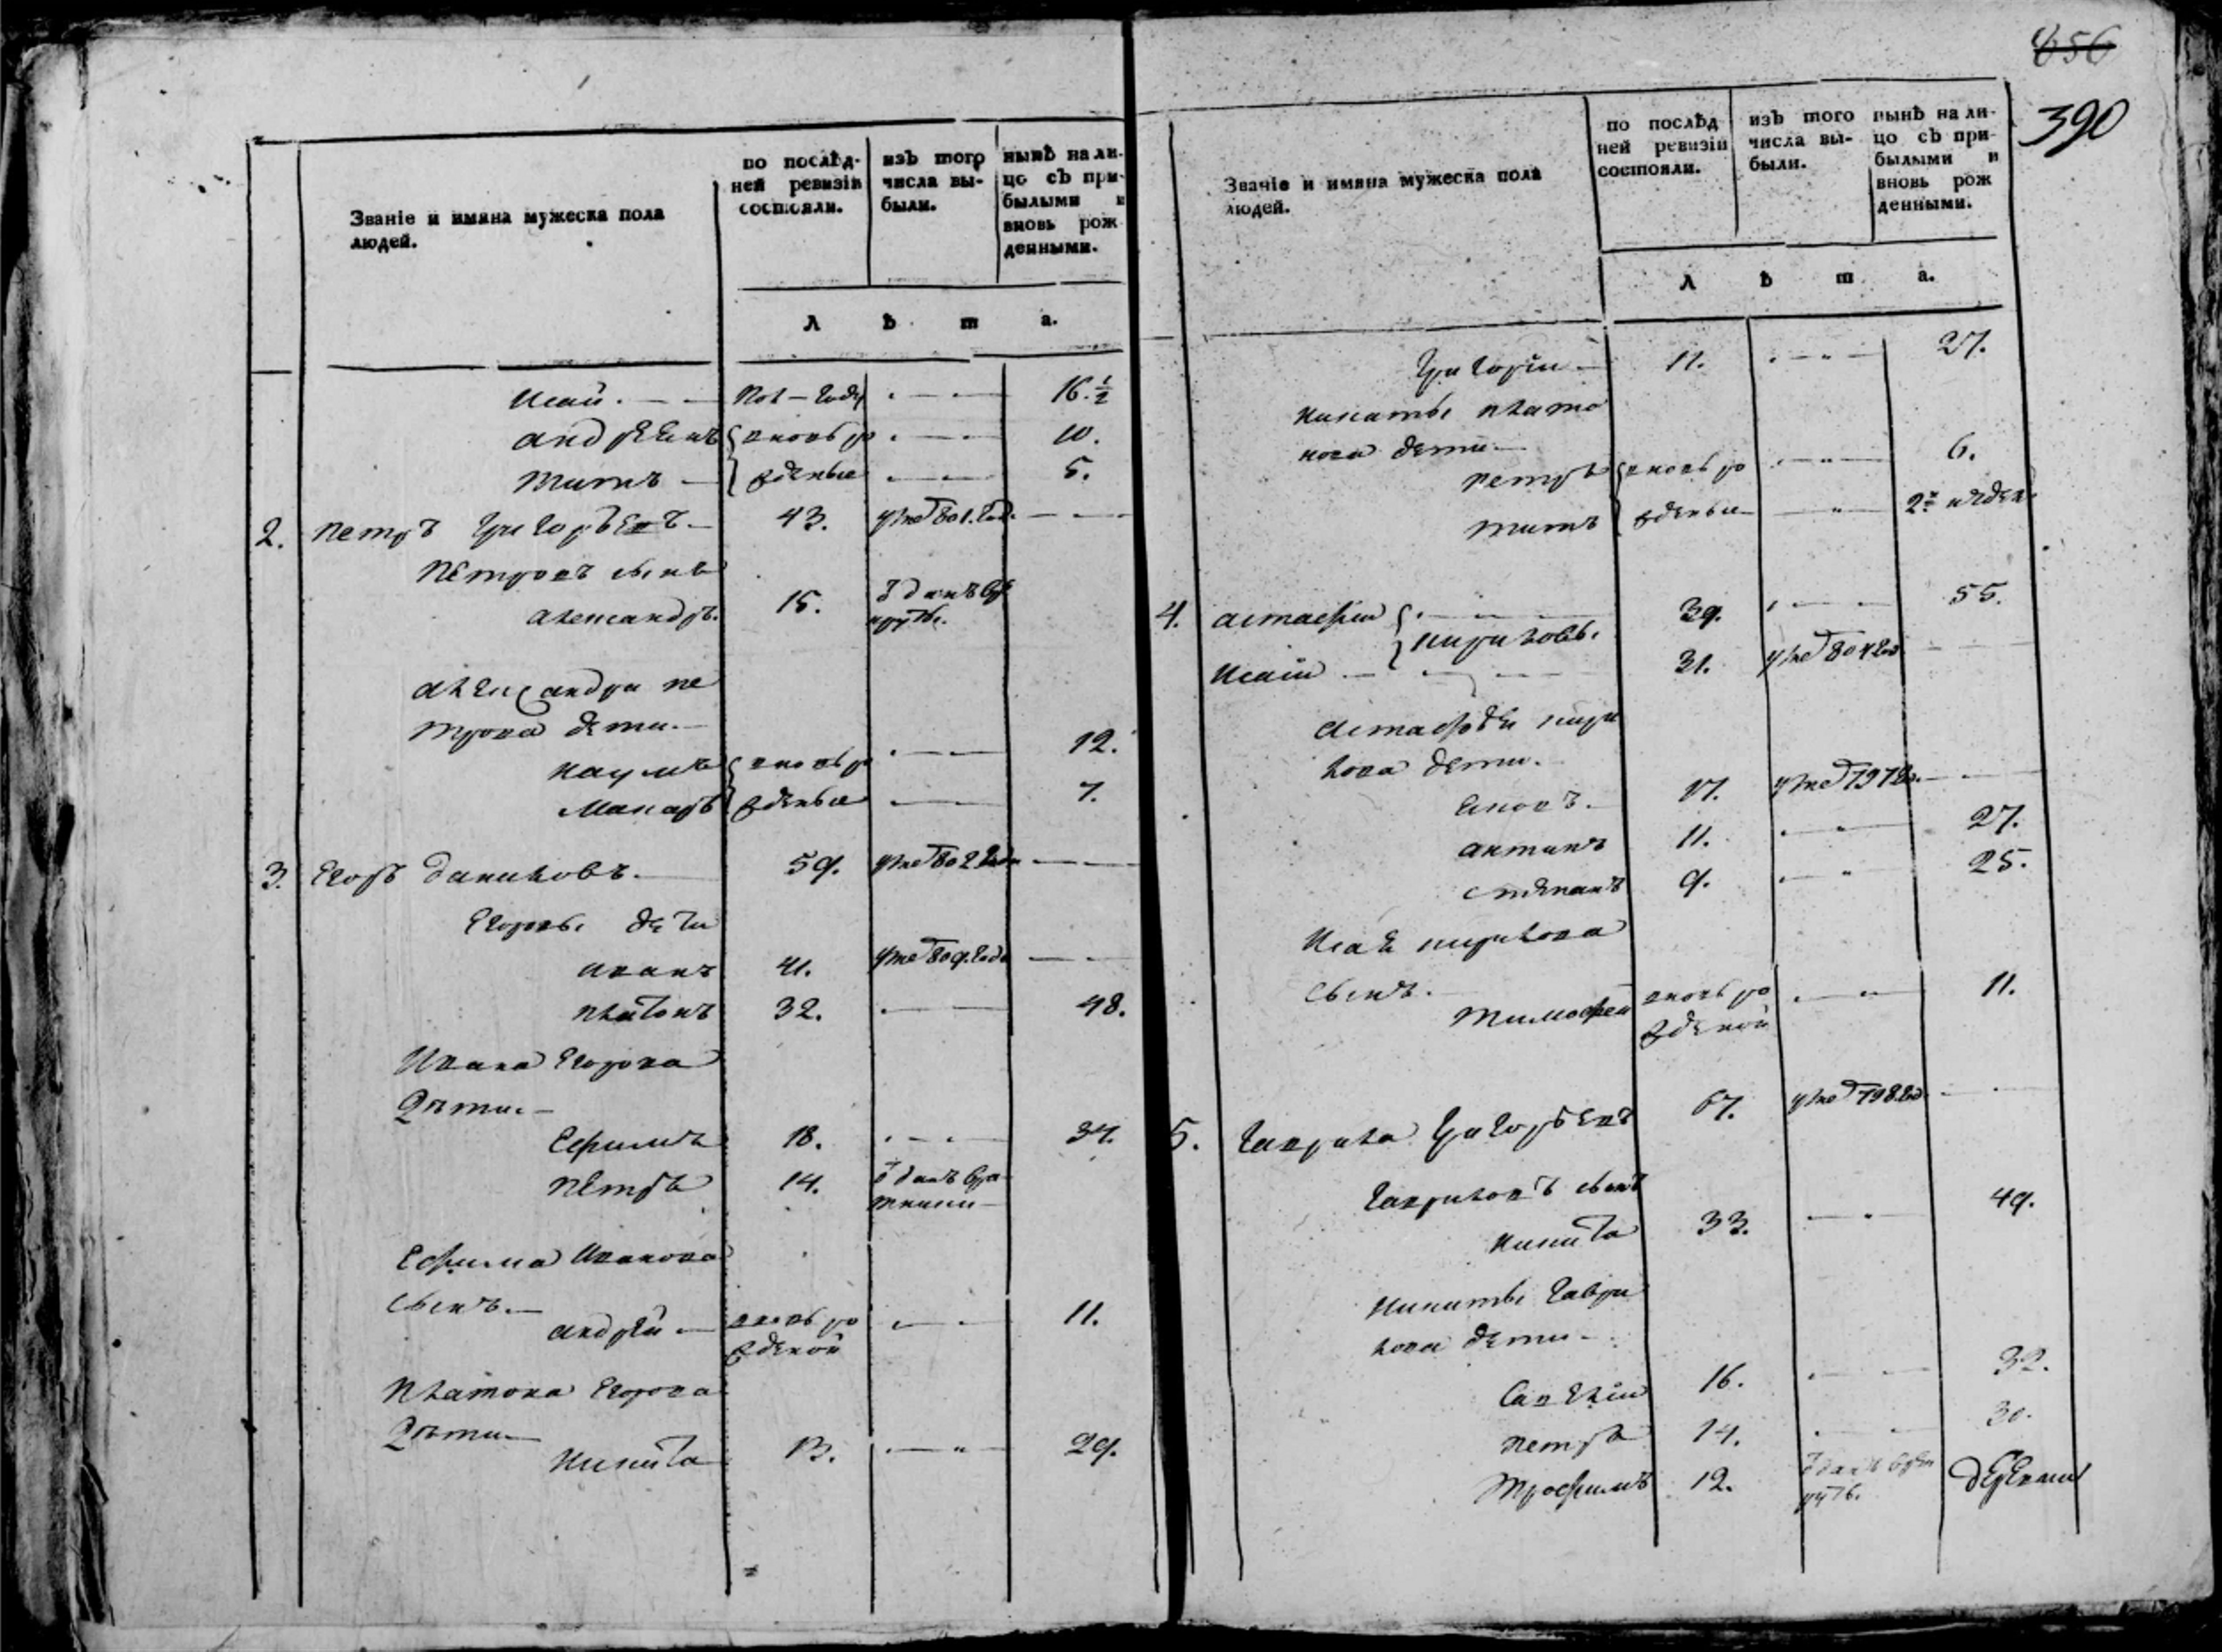 856
390
Званіе и имяна мужеска пола
людей.
по послѣд-
ней ревизіи
состояли.
изъ того
числа вы-
были.
нынѣ на ли-
цо съ при-
былыми и
вновь рож
денными.
л ѣ т а.
Исай. пол-году 16.½
Андреянъ вновь ро 10.
Титъ жденные 5.
2. Петръ Григорьевъ 43. умре 801. год.
Петровъ сынъ
Александръ. 15. отданъ въ ре
круты.
Александра Пе
трова дети.
Наумъ вновь ро 12.
Макаръ жденные 7.
3. Егоръ Даниловъ. 59. умре 802 года
Егоровы дети
Иванъ 41. умре 809. года
Платонъ 32. 48.
Ивана Егорова
Дѣти.
Ефимъ 18. 34.
Петръ 14. отданъ в ра
тники
Ефима Иванова
сынъ.
Андрей вновь ро 11.
жденой
Платона Егорова
Дѣти
Никита 13. 29.
Званіе и имяна мужеска пола
людей.
по послѣд
ней ревизіи
состояли.
изъ того
числа вы-
были.
нынѣ на ли-
цо съ при-
былыми и
вновь рож
денными.
л ѣ т а.
Григорій 11. 27.
Никиты Плато
нова дети
Петръ вновь ро 6.
Титъ жденые 2х недел.
4. Астафій 39. 55.
Кириловы.
Исаій 31. умре 804 год
Астафья Кири
лова дети.
Яковъ. 17. умре 797 го.
Антипъ 11. 27.
Степанъ 9. 25.
Исая Кирилова
сынъ.
Тимофей вновь ро 11.
жденой
5. Гаврила Григорьевъ 67. умре 798. год
Гавриловъ сынъ
Никита 33. 49.
Никиты Гаври
лова дети
Савелій 16. 32.
Петръ 14. 30.
Трофимъ 12. отданъ в рек
руты.